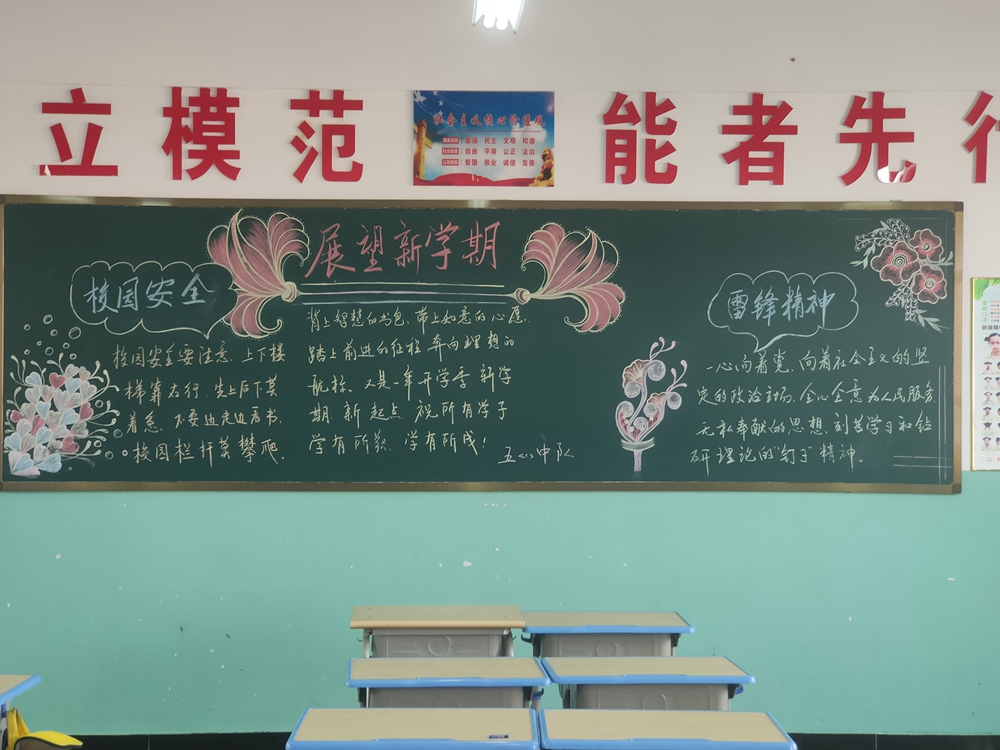 立模范
能者先行
社会主义核心价值观
富强 民主 文明 和谐
自由 平等 公正 法治
爱国 敬业 诚信 友善
展望新学期
校园安全
校园安全要注意,上下楼
梯靠右行,先上后下莫
着急,不要边走边看书,
校园栏杆莫攀爬。
背上智慧的书包,带上如意的心愿,
踏上前进的征程,奔向理想的
航标,又是一年开学季,新学
期,新起点,祝所有学子
学有所获,学有所成!
五(八)中队
雷锋精神
一心向着党,向着社会主义的坚
定的政治立场,全心全意为人民服务
无私奉献的思想,刻苦学习和钻
研理论的"钉子"精神。